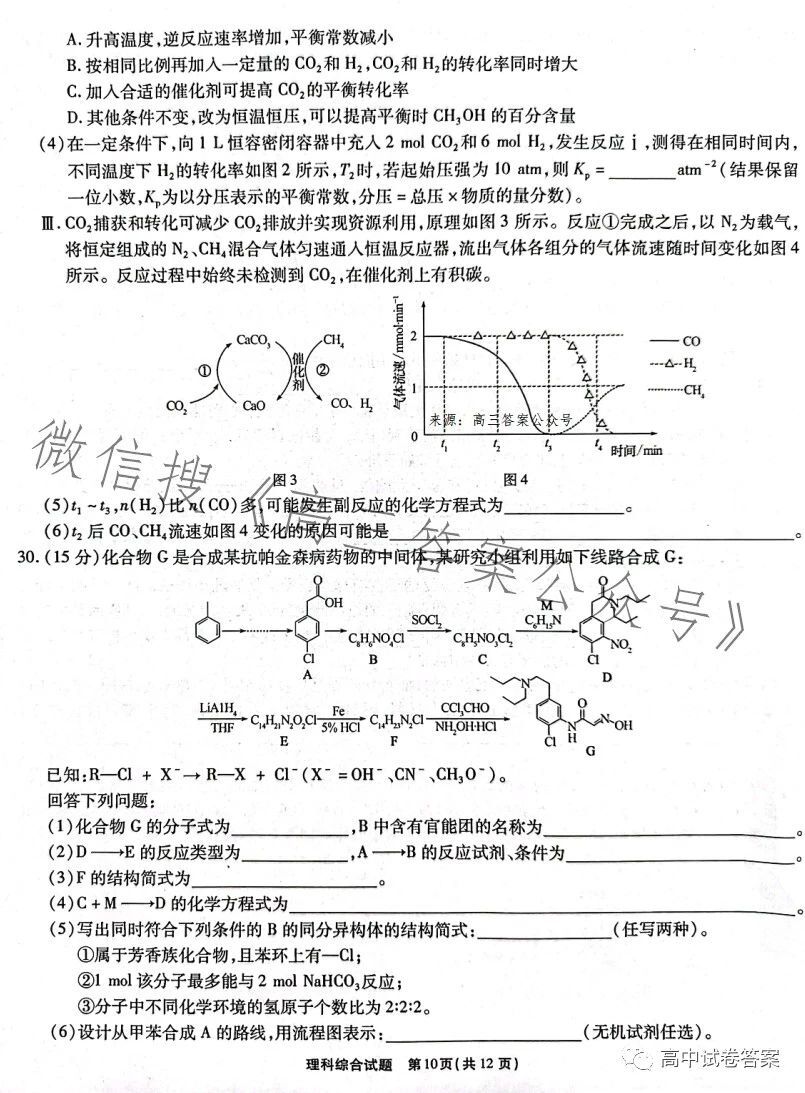 A.升高温度,逆反应速率增加,平衡常数减小
B.按相同比例再加入一定量的 CO₂和 H₂,CO₂和 H₂的转化率同时增大
C.加入合适的催化剂可提高 CO₂的平衡转化率
D.其他条件不变,改为恒温恒压,可以提高平衡时 CH₃OH 的百分含量
(4)在一定条件下,向 1 L 恒容密闭容器中充入 2 mol CO₂和 6 mol H₂,发生反应 i ,测得在相同时间内,
不同温度下 H₂的转化率如图 2 所示,T₂时,若起始压强为 10 atm,则 Kₚ = ________atm⁻²(结果保留
一位小数,Kₚ为以分压表示的平衡常数,分压 = 总压 × 物质的量分数)。
Ⅲ. CO₂捕获和转化可减少 CO₂排放并实现资源利用,原理如图 3 所示。反应①完成之后,以 N₂为载气,
将恒定组成的 N₂、CH₄混合气体匀速通入恒温反应器,流出气体各组分的气体流速随时间变化如图 4
所示。反应过程中始终未检测到 CO₂,在催化剂上有积碳。
CaCO₃
CH₄
①
催化剂
②
CO₂
CaO
CO、H₂
图 3
气体流速/mmol·min⁻¹
2
1
0
t₁
t₂
t₃
t₄
时间/min
CO
H₂
CH₄
来源:高三答案公众号
图 4
微信搜《高三答案公众号》
(5)t₁ ~ t₃,n(H₂)比 n(CO)多,可能发生副反应的化学方程式为____________。
(6)t₂ 后 CO、CH₄流速如图 4 变化的原因可能是____________。
30. (15 分)化合物 G 是合成某抗帕金森病药物的中间体,某研究小组利用如下线路合成 G:
O
OH
Cl
A
C₈H₆NO₄Cl
B
SOCl₂
C₈H₅NO₃Cl₂
C
M
C₆H₁₅N
O
NO₂
Cl
D
LiAlH₄
THF
C₁₄H₂₁N₂O₂Cl
E
Fe
5% HCl
C₁₄H₂₃N₂Cl
F
CCl₃CHO
NH₂OH·HCl
N
Cl
N
H
O
N
OH
G
已知:R—Cl + X⁻→ R—X + Cl⁻(X⁻ = OH⁻、CN⁻、CH₃O⁻)。
回答下列问题:
(1)化合物 G 的分子式为____________,B 中含有官能团的名称为____________。
(2)D ⟶E 的反应类型为____________,A ⟶B 的反应试剂、条件为____________。
(3)F 的结构简式为____________。
(4)C + M ⟶D 的化学方程式为____________。
(5)写出同时符合下列条件的 B 的同分异构体的结构简式:____________(任写两种)。
①属于芳香族化合物,且苯环上有—Cl;
②1 mol 该分子最多能与 2 mol NaHCO₃反应;
③分子中不同化学环境的氢原子个数比为 2:2:2。
(6)设计从甲苯合成 A 的路线,用流程图表示:____________(无机试剂任选)。
理科综合试题 第10页(共 12 页)
高中试卷答案